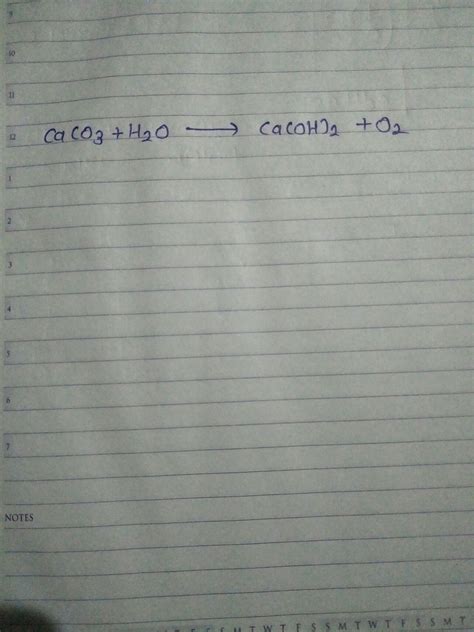 9
10
11
12 CaCO3 + H2O ⟶ Ca(OH)2 + O2
1
2
3
4
5
6
7
NOTES
S M T W T F S S M T W T F S S M T